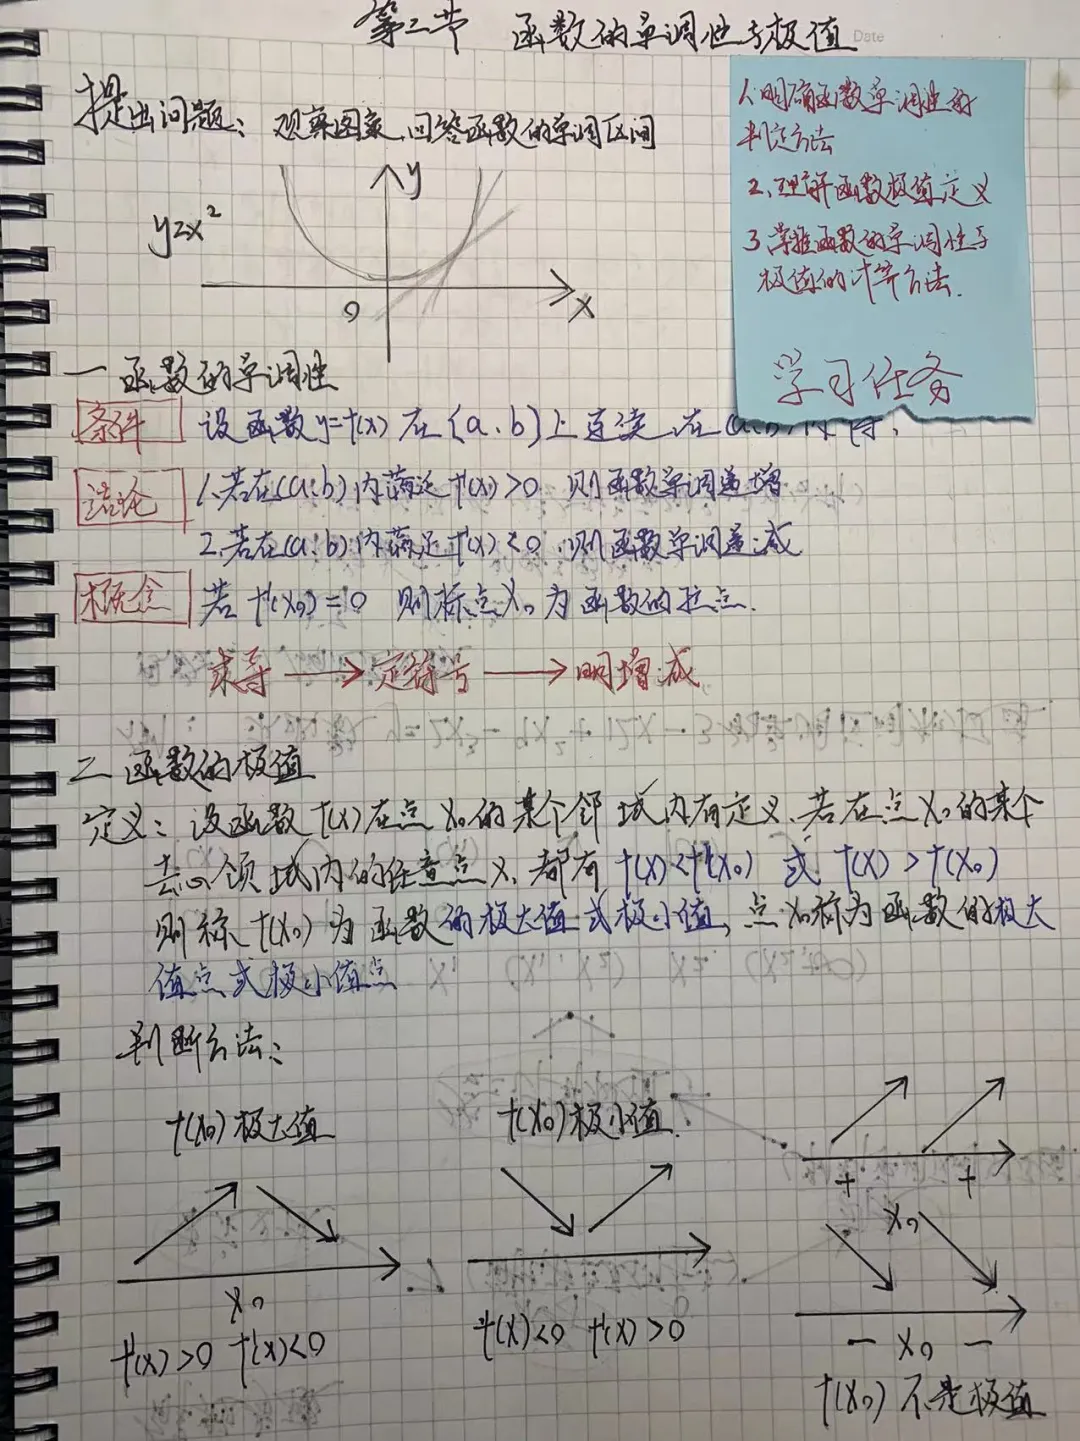 第二节 函数的单调性与极值
Date
提出问题: 观察图象,回答函数的单调区间
y=x²
y
0
x
1.明确函数单调性的
判定方法
2.理解函数极值定义
3.掌握函数的单调性与
极值的计算方法.
学习任务
一 函数的单调性
条件 设函数y=f(x) 在[a.b]上连续,在(a.b)内可导,
结论 1.若在(a.b)内满足f'(x)>0 则函数单调递增
2.若在(a.b)内满足f'(x)<0 则函数单调递减
概念 若f'(x₀)=0 则称点x₀为函数的驻点.
求导 → 定符号 → 明增减
二 函数的极值
定义: 设函数f(x)在点x₀的某个邻域内有定义,若在点x₀的某个
去心领域内的任意点x,都有f(x)<f(x₀) 或 f(x)>f(x₀)
则称f(x₀)为函数的极大值或极小值,点x₀称为函数的极大
值点或极小值点
判断方法:
f(x₀)极大值 f(x₀)极小值.
+ +
x₀
x₀
f'(x)>0 f'(x)<0 f'(x)<0 f'(x)>0
- x₀ -
f(x₀)不是极值